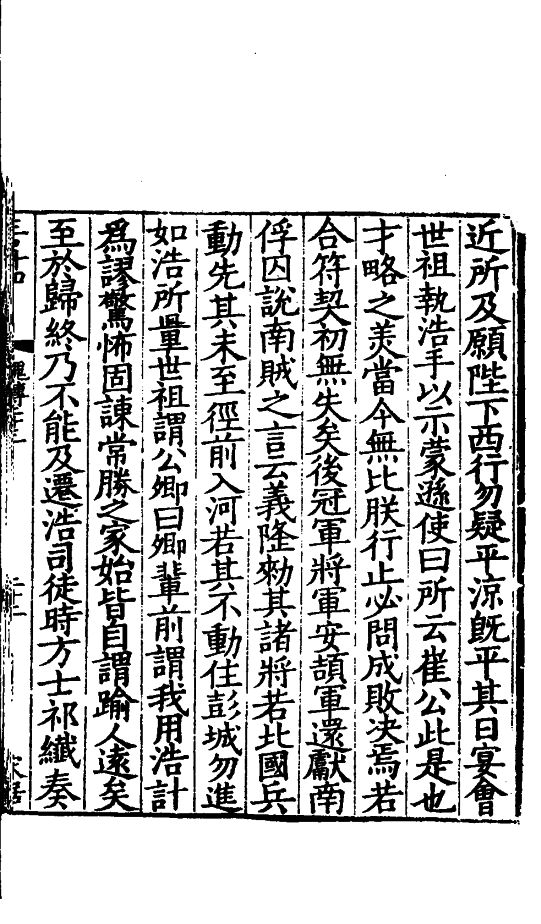 近所及願陛下西行勿疑平涼旣平其日宴會
世祖執浩手以示蒙遜使曰所云崔公此是也
才略之美當今無比朕行止必問成敗决焉若
合符契初無失矣後冠軍將軍安頡軍還獻南
俘囚說南賊之言云義隆勑其諸將若北國兵
動先其未至徑前入河若其不動住彭城勿進
如浩所量世祖謂公卿曰卿輩前謂我用浩計
爲謬驚怖固諫常勝之家始皆自謂踰人遠矣
至於歸終乃不能及遷浩司徒時方士祁纖奏